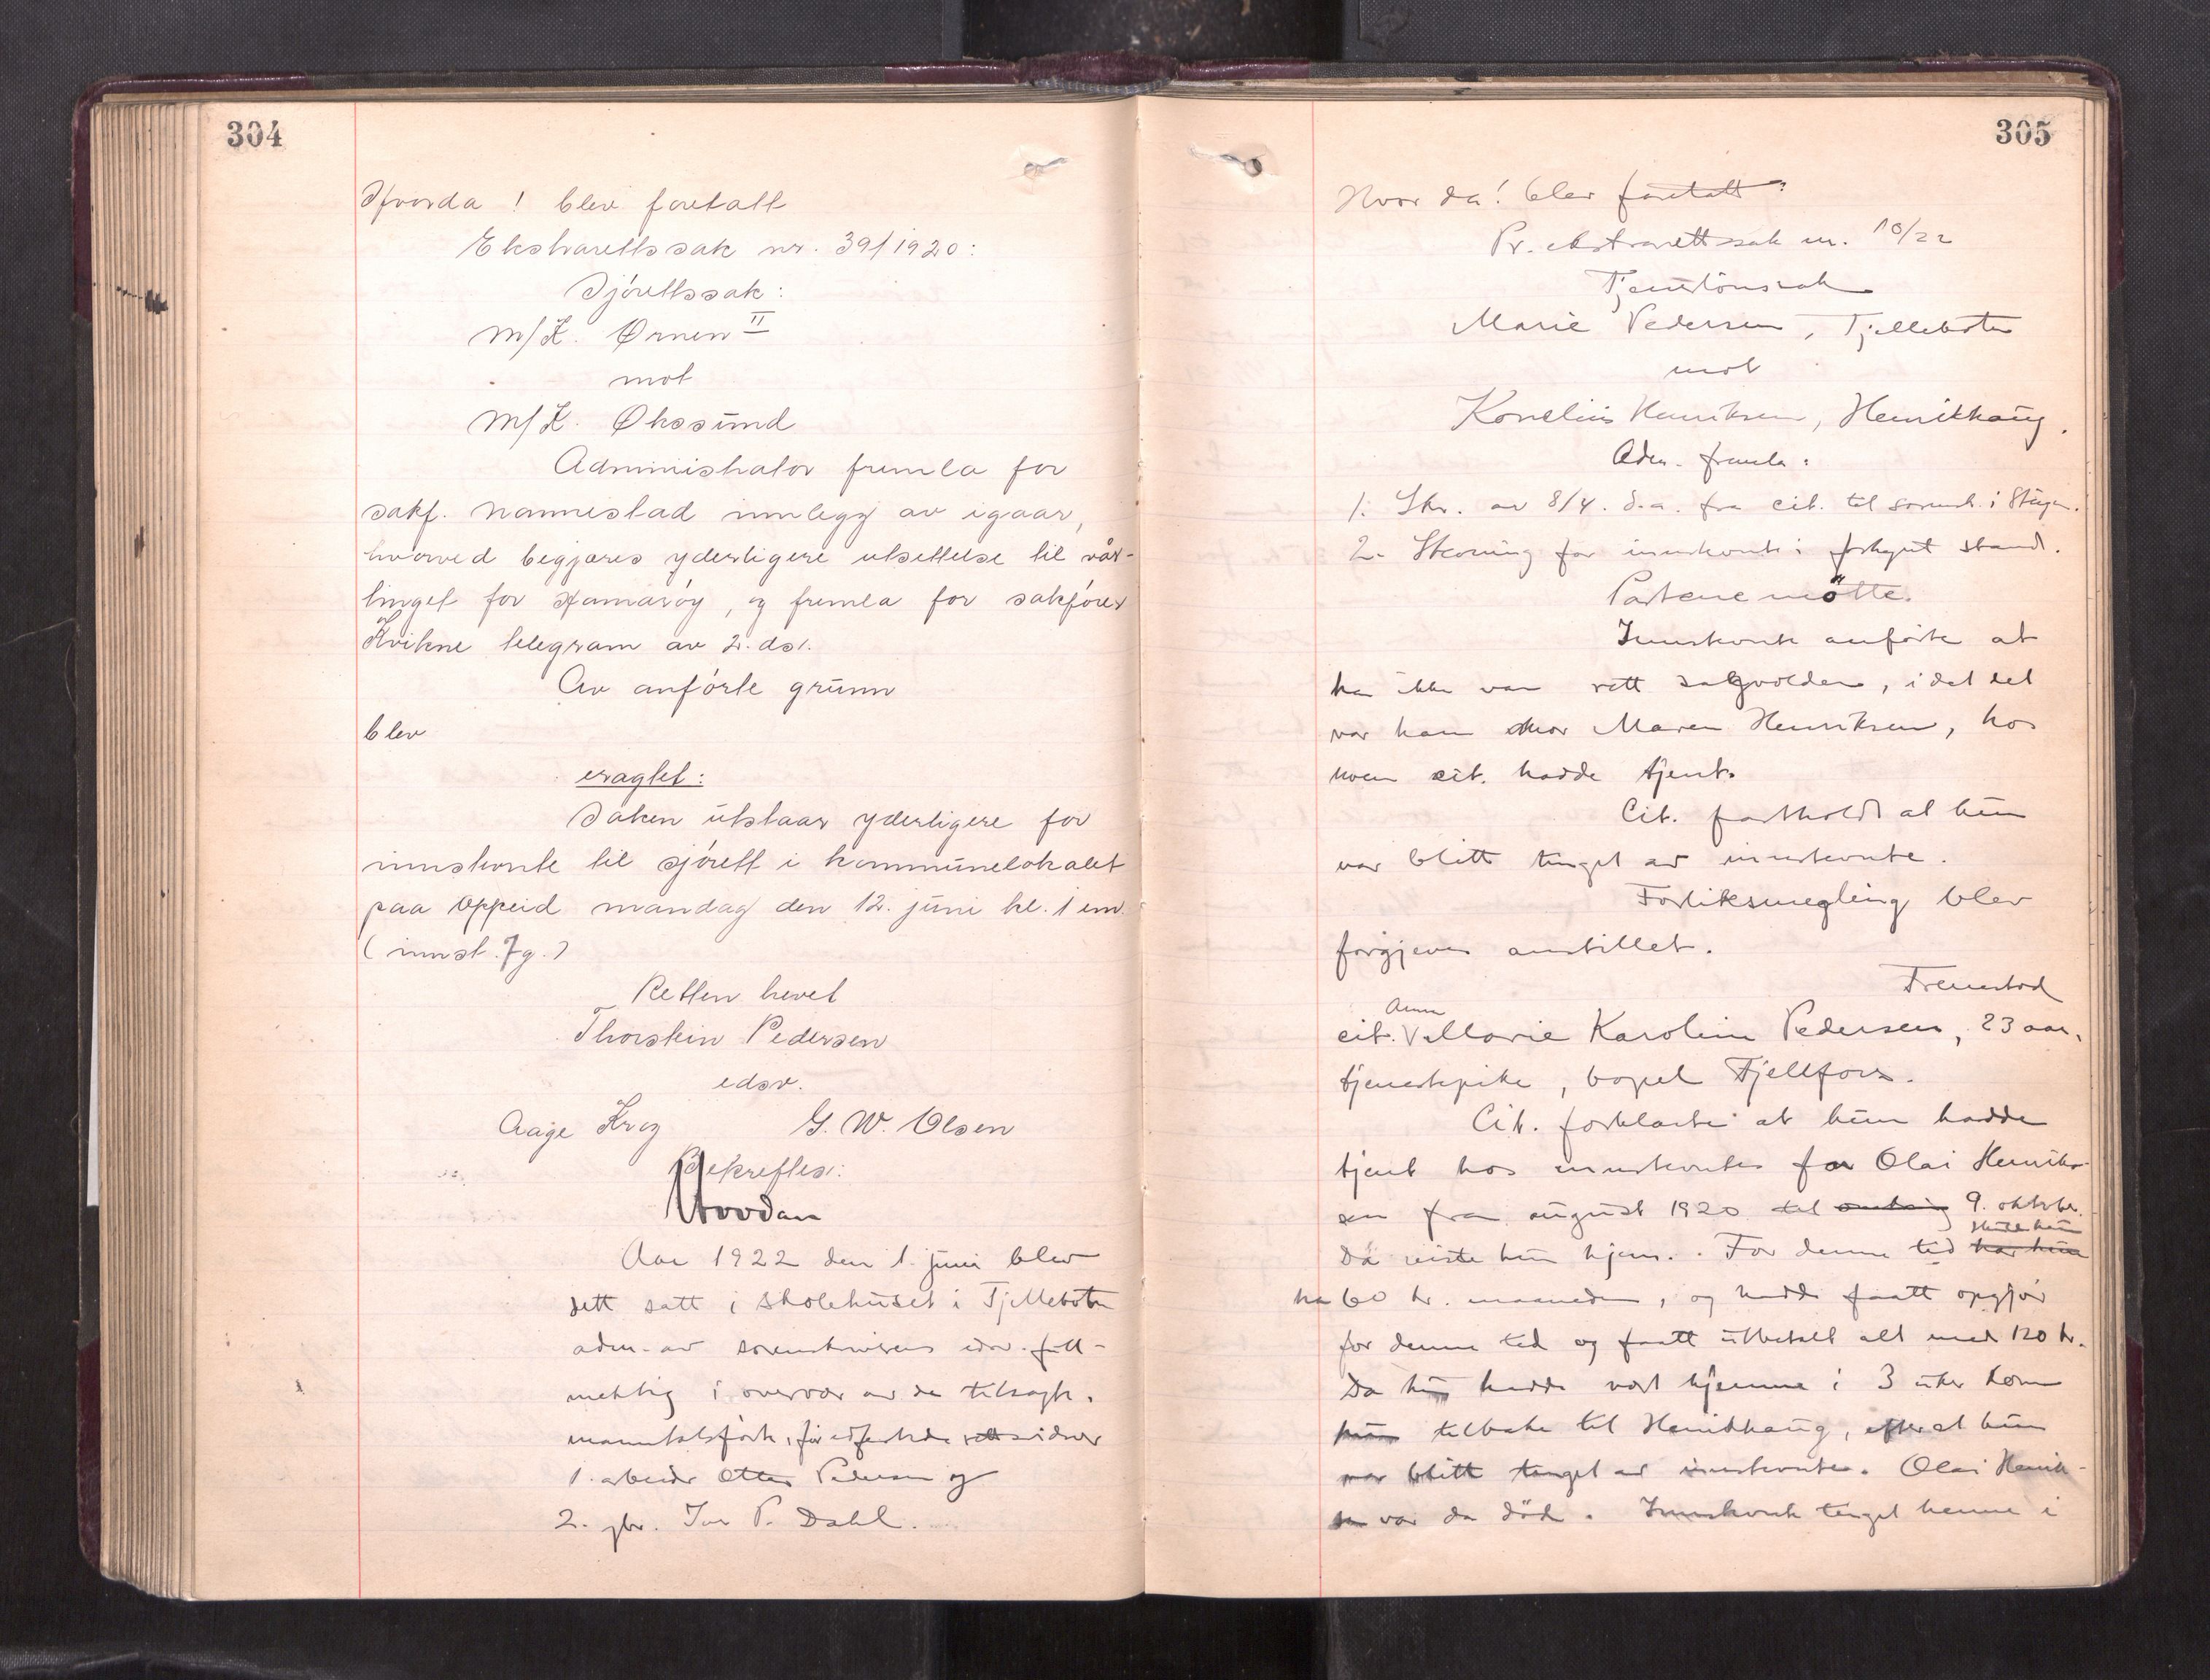 304
Hvorda! blev foretatt
Ekstrarettssak nr. 39/1920:
Sjørettssak:
M/K. Ørnen II
mot
M/K. Økssund
Administrator fremla for
sakf. Nannestad innlegg av igaar,
hvorved begjæres yderligere utsettelse til vår-
tinget for Hamarøy, og fremla for sakfører
Kvikne telegram av 2. ds.
Av anførte grunn
blev
eragtet:
Saken utstaar yderligere for
innstevnte til sjørett i kommunelokalet
paa Oppeid mandag den 12. juni kl. 1 em.
(innst. 7 g.)
Retten hevet
Thorstein Pedersen
edsv.
Aage Krog G. W. Olsen
Bekreftes:
Aar 1922 den 1. juni blev
rett satt i skolehuset i Tjellebotn
adm. av sorenskriverens edsv. full-
mektig i overvær av de tilsagte,
manntalsførte, før edfestede rettsvidner
1. arbeider Otter Pedersen og
2. gbr. Ivar P. Dahl.
305
Hvor da! blev foretatt:
Pr. ekstrarettssak nr. 10/22
Tjenerlønssak
Marie Pedersen, Tjellebotn
mot
Kornelius Henriksen, Henrikhaug.
Adm. fremla:
1. Skr. av 8/4. d.a. fra cit. til sorensk. i Steigen.
2. Stevning for innstevnte i forkynt stand.
Partene møtte.
Innstevnte anførte at
han ikke var rett saksvolder, idet det
var hans mor Maren Henriksen, hos
hvem cit. hadde tjent.
Cit. fastholdt at hun
var blitt tinget av innstevnte.
Forliksmegling blev
forgjeves anstillet.
Fremstod
Anna
cit. V Marie Karoline Pedersen, 23 aar,
tjenestepike, bopel Tjellfors.
Cit. forklarte at hun hadde
tjent hos innstevntes far Olai Henrik-
sen fra august 1920 til omkring 9. oktober.
skulde hun
Da reiste hun hjem. For denne tid har hun
ha 60 kr. maaneden, og hadde faatt opgjør
for denne tid og faatt utbetalt alt med 120 kr.
Da hun hadde vært hjemme i 3 uker kom
hun tilbake til Henrikhaug, efter at hun
var blitt tinget av innstevnte. Olai Henrik-
sen var da død. Innstevnte tinget henne i